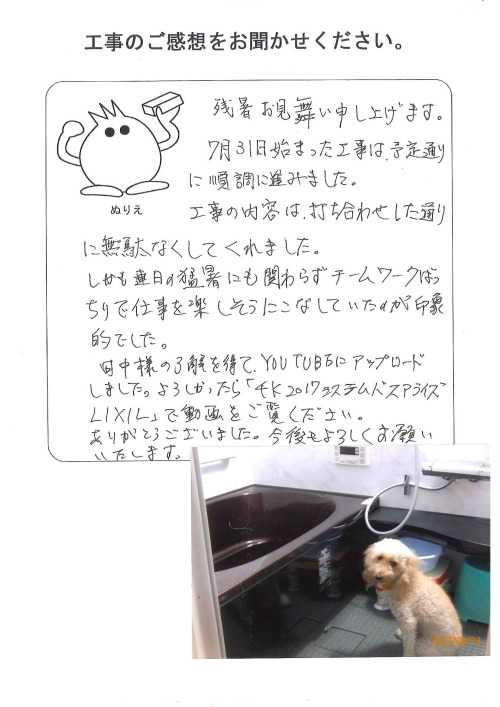 工事のご感想をお聞かせください。
ぬりえ
残暑お見舞い申し上げます。
7月31日始まった工事は、予定通り
に順調に進みました。
工事の内容は、打ち合わせした通り
に無駄なくしてくれました。
しかも連日の猛暑にも関わらずチームワークばっ
ちりで仕事を楽しそうにこなしていたのが印象
的でした。
田中様の了解を得て、YOUTUBEにアップロード
しました。よろしかったら「4K2017システムバスアライズ
LIXIL」で動画をご覧ください。
ありがとうございました。今後もよろしくお願い
いたします。